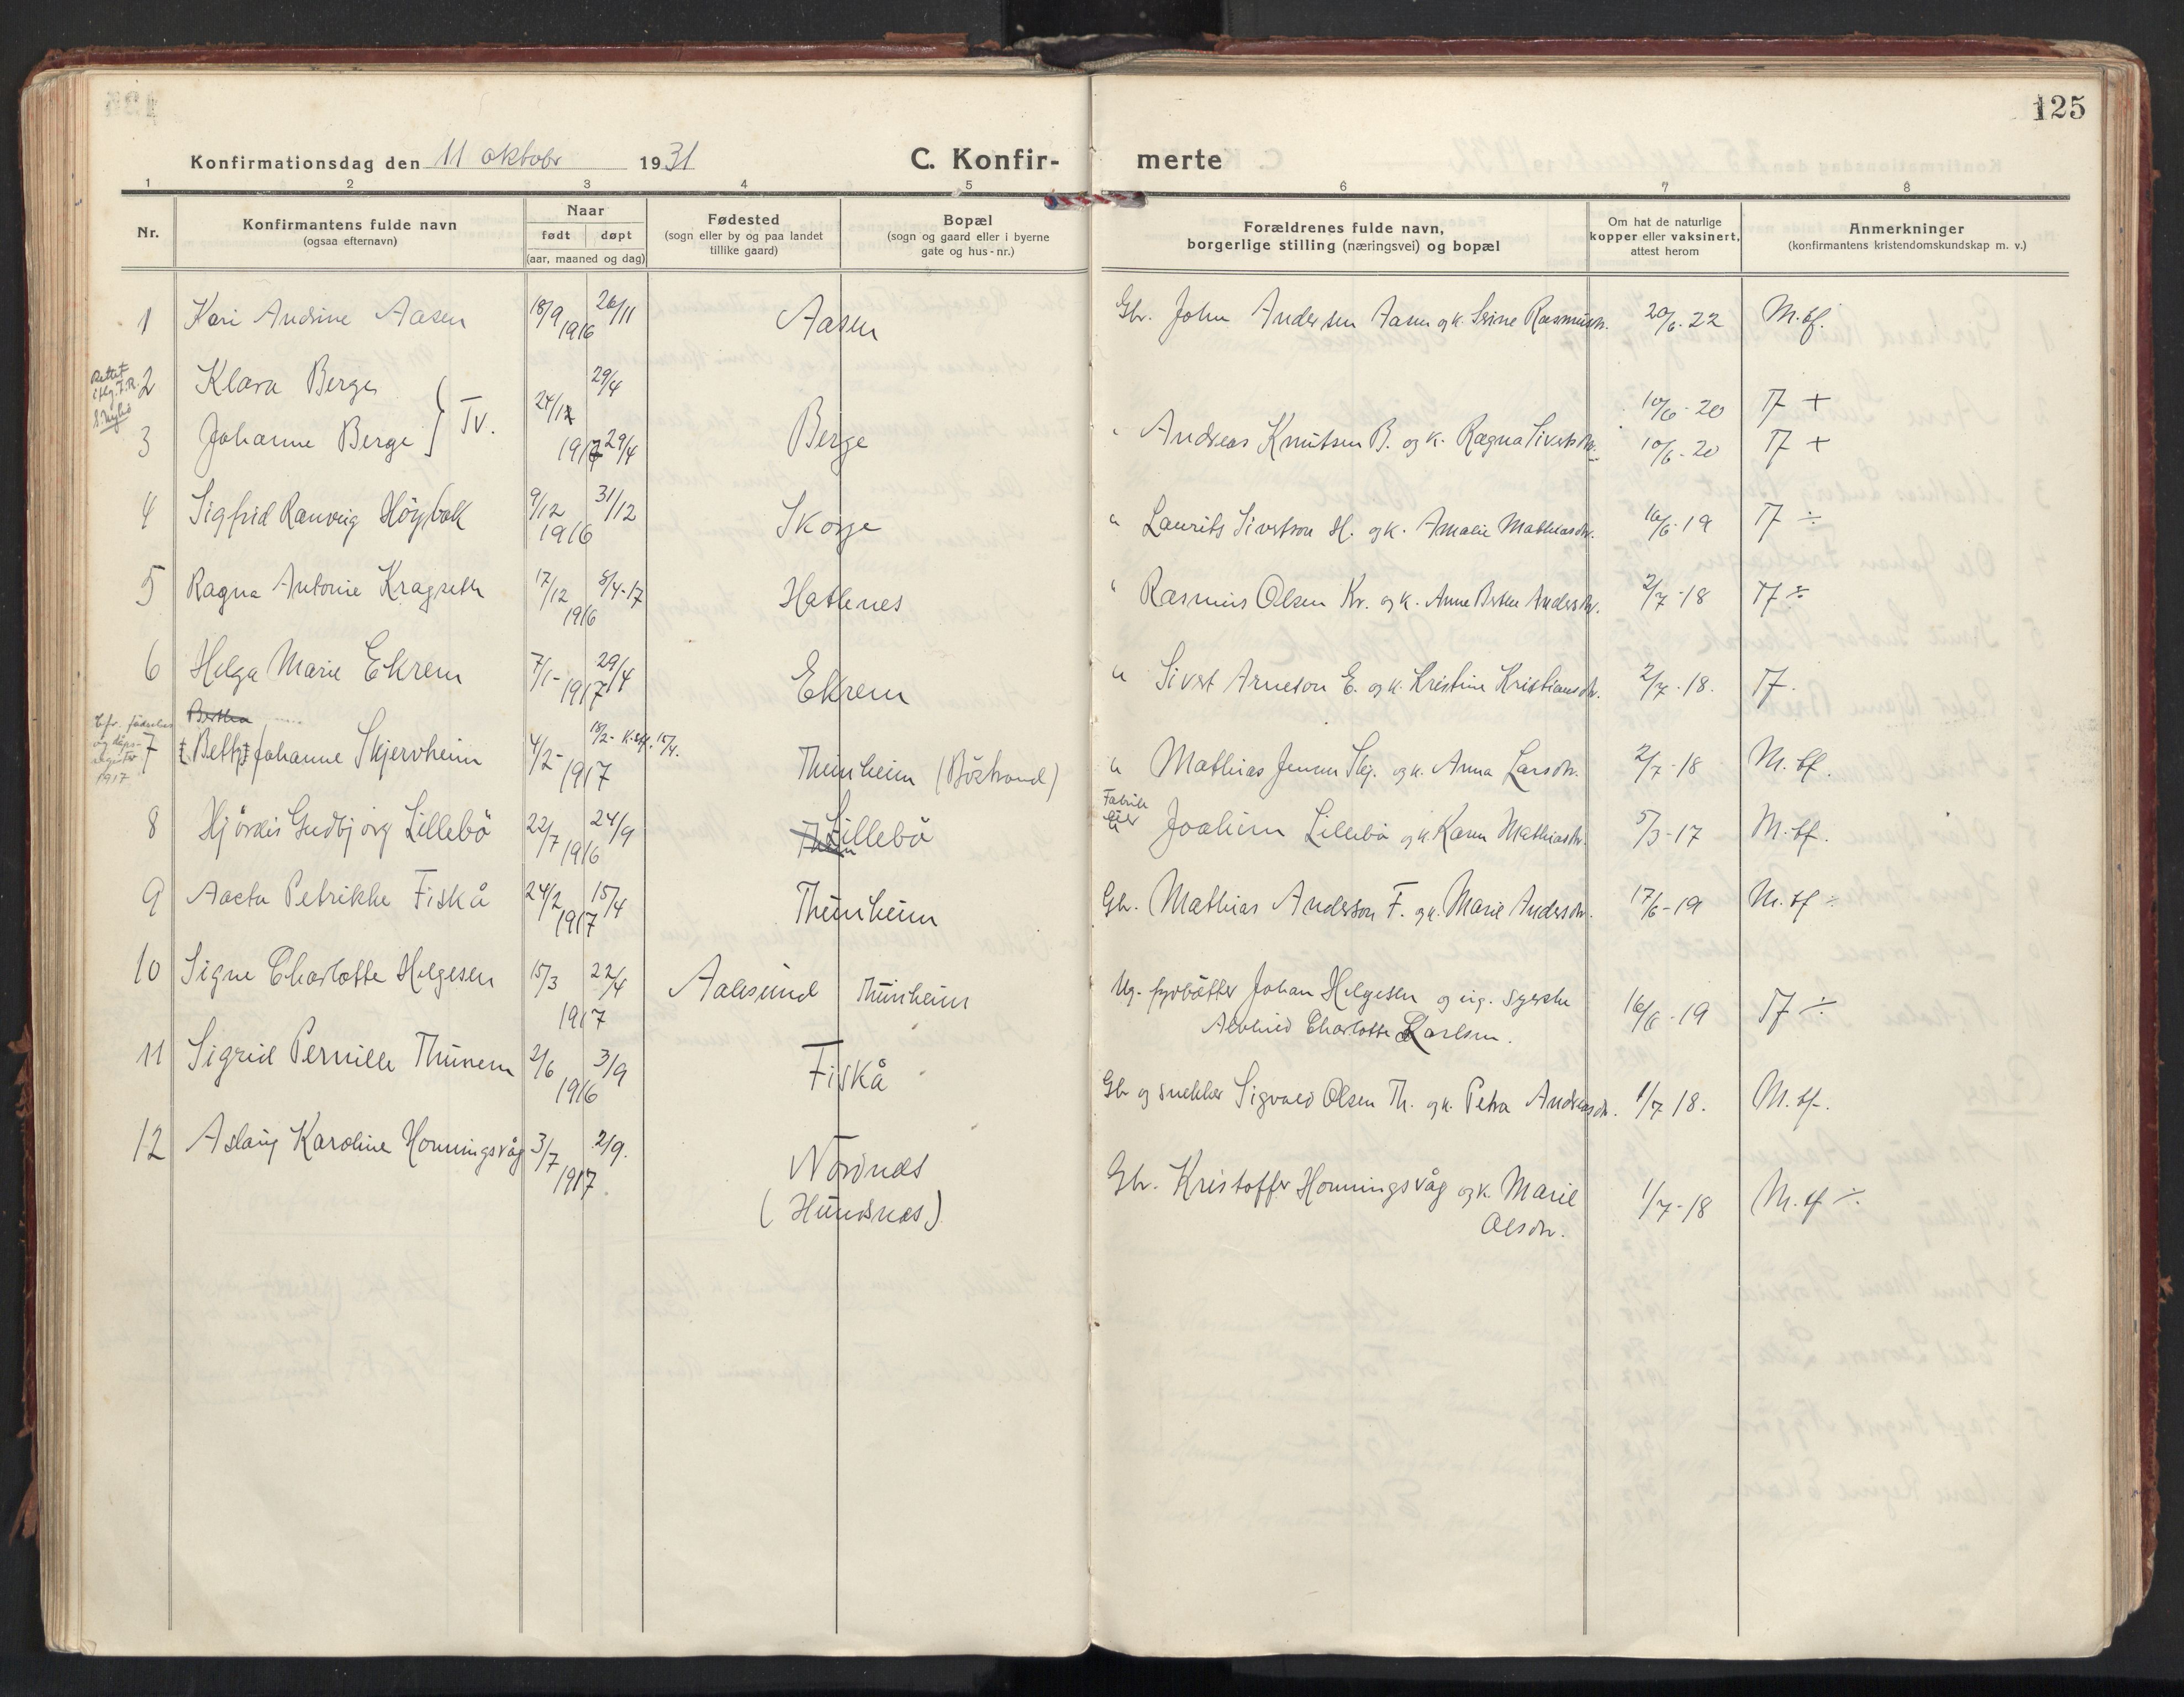 125
Konfirmationsdag den 11 oktobr 1931 C. Konfir- merte
1 2 3 4 5 6 7 8
Nr.
Konfirmantens fulde navn
(ogsaa efternavn)
Naar
født døpt
(aar, maaned og dag)
Fødested
(sogn eller by og paa landet
tillike gaard)
Bopæl
(sogn og gaard eller i byerne
gate og hus-nr.)
Forældrenes fulde navn,
borgerlige stilling (næringsvei) og bopæl
Om hat de naturlige
kopper eller vaksinert,
attest herom
Anmerkninger
(konfirmantens kristendomskundskap m. v.)
1 Kari Andrine Aasen 18/9 1916 26/11 Aasen Gbr. John Andersen Aasen og k. Serine Rasmusdr. 20/6-22 M.tf.
Rettet
2 Klara Berge 29/4 10/6-20 Tf +
} Tv. 24/12 1916 Berge " Andreas Knutsen B. og k. Ragna Sivertsdtr.
3 Johanne Berge 29/4 10/6-20 Tf +
4 Sigfrid Ranveig Höybak 9/12 1916 31/12 Skorge " Laurits Sivertson H. og k. Amalie Mathiasdtr. 16/6-19 Tf ÷
5 Ragna Antonie Kragseth 17/12 1916 8/4-17 Hatlenes " Rasmus Olsen Kr. og k. Anne Berthe Andersdtr. 2/7-18 Tf ÷
6 Helga Marie Ekrem 7/1- 1917 29/4 Ekrem " Sivert Arneson E. og k. Kristine Kristiansdtr. 2/7-18. Tf.
Cfr. fødselsog
dåpsregister
1917
Berthea
7 [Betty] Johanne Skjervheim 4/2- 1917 18/2- k.stf. 15/4. Thunheim (Böstrand) " Mathias Jensen Skj. og k. Anna Larsdtr. 2/7-18 M.tf.
8 Hjördis Gudbjörg Lillebö 22/7 1916 24/9 Lillebö Fabrikeier Joakim Lillebö og k Karen Mathiasdtr. 5/3-17 M.tf.
9 Aasta Petrikke Fiskå 24/2 1917 15/4 Thunheim Gbr. Mathias Anderson F. og k. Marie Andersdtr. 17/6-19 M.tf ÷
10 Signe Charlotte Helgesen 15/3 1917 22/4 Aalesund Thunheim Ug. fyrbötter Johan Helgesen og ug. syerske
Alvhild Charlotte Karlsen. 16/6-19 Tf ÷
11 Sigrid Pernille Thunem 2/6 1916 3/9 Fiskå Gbr og snekker Sigvald Olsen Th. og k. Petra Andreasdtr. 1/7 18. M.tf.
12 Aslaug Karoline Honningsvåg 3/7 1917. 2/9. Nordnes
(Hundsnes) Gbr. Kristoffer Honningsvåg og k. Marie
Olsdtr. 1/7-18 M.tf ÷